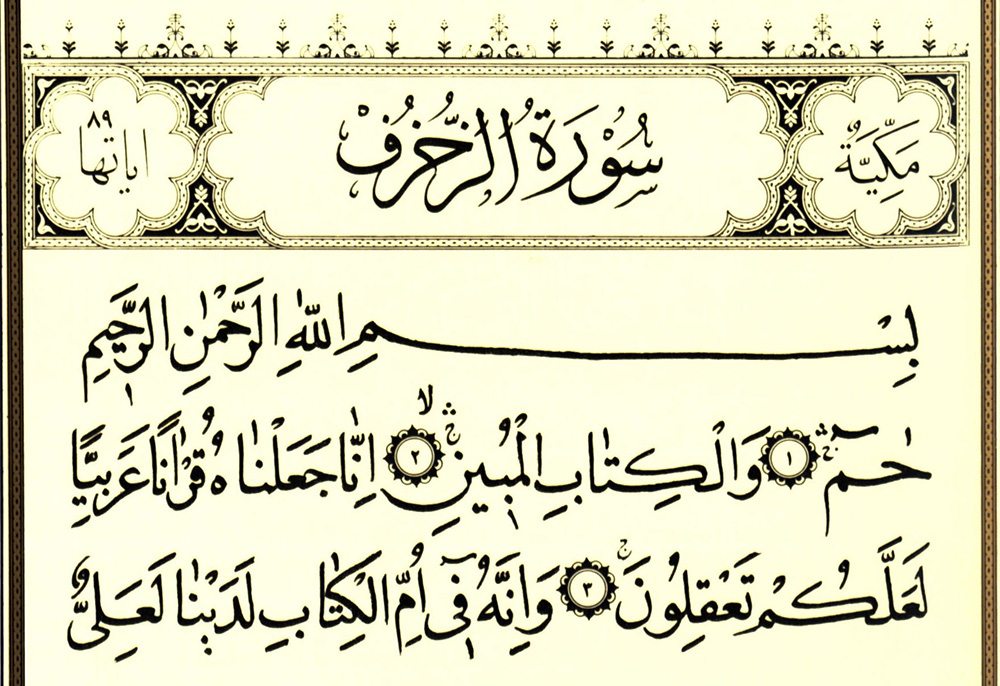 مَكِّيَّةٌ
سُوْرَةُ الزُّخْرُفِ
اٰيَاتُهَا ٨٩
بِسْــــــمِ اللّٰهِ الرَّحْمٰنِ الرَّحِيمِ
حٰمٓ ۛ ١ وَالْكِتَابِ الْمُبِينِ ۛ لا ٢ اِنَّا جَعَلْنَاهُ قُرْاٰنًا عَرَبِيًّا
لَعَلَّكُمْ تَعْقِلُونَ ج ٣ وَاِنَّهُ فٓى اُمِّ الْكِتَابِ لَدَيْنَا لَعَلِىٌّ